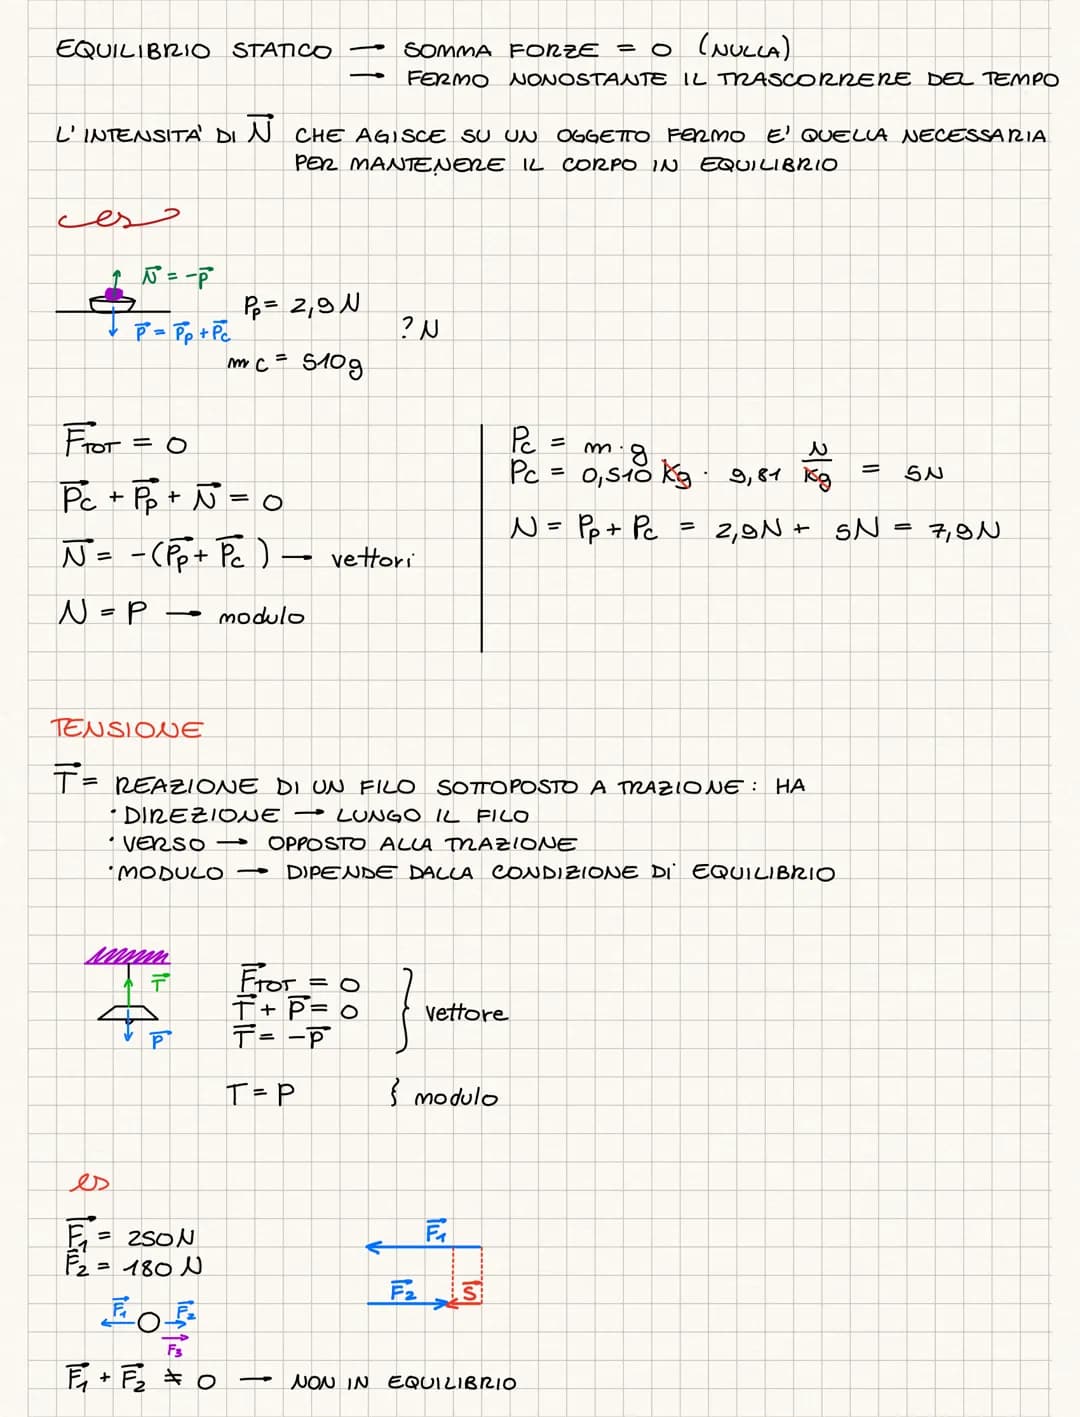 EQUILIBRIO STATICO → SOMMA FORZE = 0 (NULLA)
→ FERMO NONOSTANTE IL TRASCORRERE DEL TEMPO
L'INTENSITA' DI N⃗ CHE AGISCE SU UN OGGETTO FERMO E' QUELLA NECESSARIA
PER MANTENERE IL CORPO IN EQUILIBRIO
es
N⃗ = -P⃗
P⃗ = P⃗p + P⃗c
Pp = 2,9 N
? N
mc = 510g
F⃗TOT = 0
P⃗c + P⃗p + N⃗ = 0
N⃗ = -(P⃗p + P⃗c) → vettori
N = P → modulo
Pc = m · g
Pc = 0,510 Kg · 9,81 N/Kg = 5N
N = Pp + Pc = 2,9N + 5N = 7,9N
TENSIONE
T⃗ = REAZIONE DI UN FILO SOTTOPOSTO A TRAZIONE: HA
· DIREZIONE → LUNGO IL FILO
· VERSO → OPPOSTO ALLA TRAZIONE
· MODULO → DIPENDE DALLA CONDIZIONE DI EQUILIBRIO
T⃗
P⃗
F⃗TOT = 0
T⃗ + P⃗ = 0
T⃗ = -P⃗
} vettore
T = P { modulo
es
F⃗1 = 250N
F⃗2 = 180 N
F⃗1 F⃗2
F3
F⃗1
F⃗2 S⃗
F⃗1 + F⃗2 ≠ 0 → NON IN EQUILIBRIO